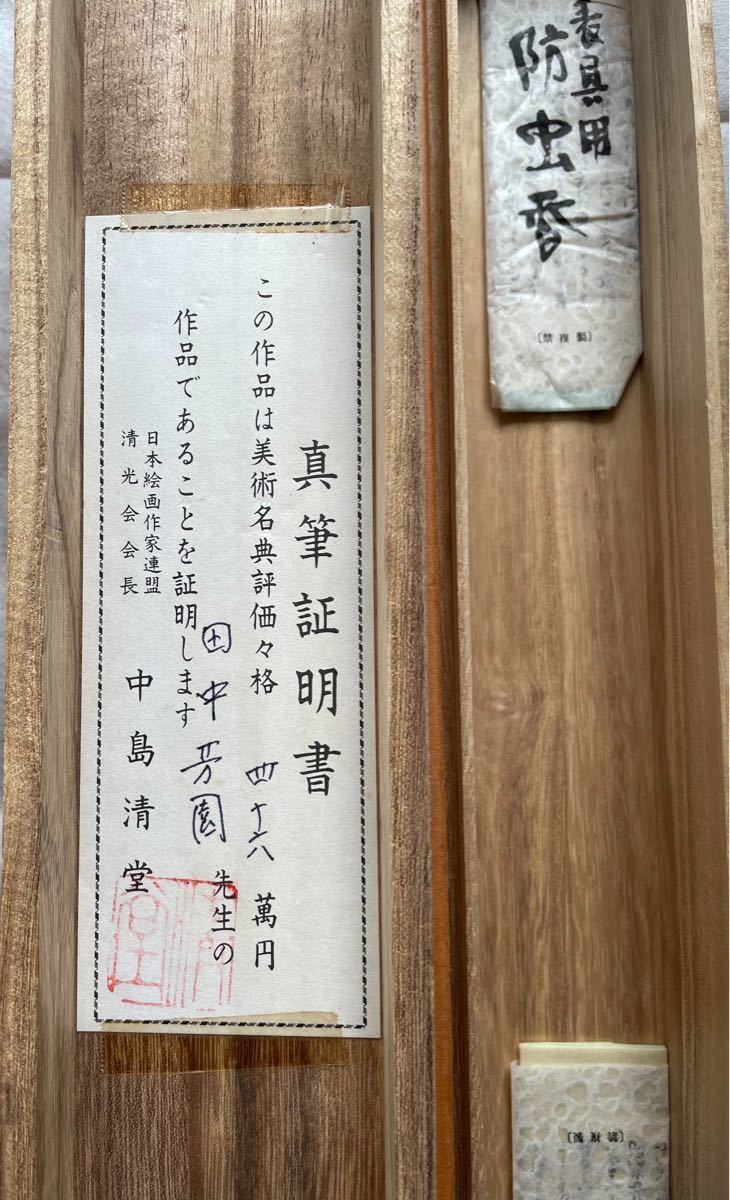 真筆証明書
この作品は美術名典評価々格 四十六 萬円
田中芳園 先生の
作品であることを証明します
日本絵画作家連盟
清光会会長
中島清堂
表具用
防虫香
〔禁複製〕
〔禁複製〕